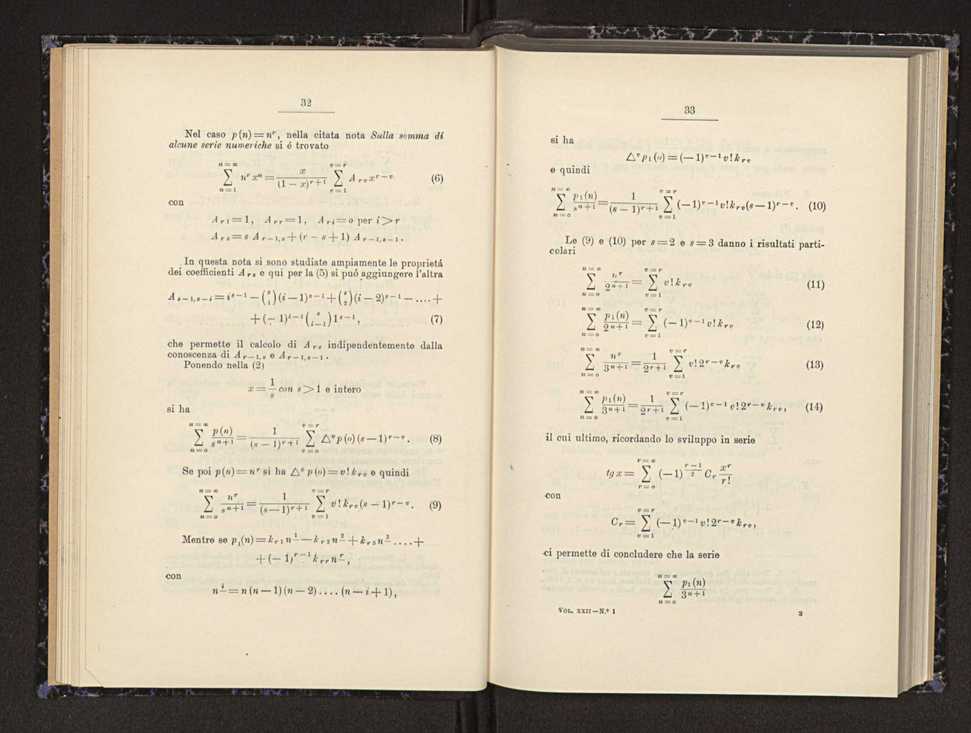 32
Nel caso p(n) = n^r, nella citata nota Sulla somma di
alcune serie numeriche si é trovato
\sum_{n=1}^{n=∞} n^r x^n = \frac{x}{(1-x)^{r+1}} \sum_{v=1}^{v=r} A_{rv} x^{r-v} (6)
con
A_{r1} = 1, A_{rr} = 1, A_{ri} = o per i > r
A_{rs} = s A_{r-1,s} + (r - s + 1) A_{r-1,s-1}.
In questa nota si sono studiate ampiamente le proprietá
dei coefficienti A_{rs} e qui per la (5) si puó aggiungere l'altra
A_{s-1,s-i} = i^{s-1} - \binom{s}{1} (i-1)^{s-1} + \binom{s}{2} (i-2)^{s-1} - .... +
+ (-1)^{i-1} \binom{s}{i-1} 1^{s-1}, (7)
che permette il calcolo di A_{rs} indipendentemente dalla
conoscenza di A_{r-1,s} e A_{r-1,s-1}.
Ponendo nella (2)
x = \frac{1}{s} con s > 1 e intero
si ha
\sum_{n=o}^{n=∞} \frac{p(n)}{s^{n+1}} = \frac{1}{(s-1)^{r+1}} \sum_{v=o}^{v=r} △^v p(o) (s-1)^{r-v}. (8)
Se poi p(n) = n^r si ha △^v p(o) = v! k_{rv} e quindi
\sum_{n=o}^{n=∞} \frac{n^r}{s^{n+1}} = \frac{1}{(s-1)^{r+1}} \sum_{v=1}^{v=r} v! k_{rv} (s-1)^{r-v}. (9)
Mentre se p_1(n) = k_{r1} n^{\underline{1}} - k_{r2} n^{\underline{2}} + k_{r3} n^{\underline{3}} .... +
+ (-1)^{r-1} k_{rr} n^{\underline{r}},
con
n^{\underline{i}} = n(n-1)(n-2) .... (n-i+1),
33
si ha
△^v p_1(o) = (-1)^{v-1} v! k_{rv}
e quindi
\sum_{n=o}^{n=∞} \frac{p_1(n)}{s^{n+1}} = \frac{1}{(s-1)^{r+1}} \sum_{v=1}^{v=r} (-1)^{v-1} v! k_{rv} (s-1)^{r-v}. (10)
Le (9) e (10) per s = 2 e s = 3 danno i risultati parti-
colari
\sum_{n=o}^{n=∞} \frac{n^r}{2^{n+1}} = \sum_{v=1}^{v=r} v! k_{rv} (11)
\sum_{n=o}^{n=∞} \frac{p_1(n)}{2^{n+1}} = \sum_{v=1}^{v=r} (-1)^{v-1} v! k_{rv} (12)
\sum_{n=o}^{n=∞} \frac{n^r}{3^{n+1}} = \frac{1}{2^{r+1}} \sum_{v=1}^{v=r} v! 2^{r-v} k_{rv} (13)
\sum_{n=o}^{n=∞} \frac{p_1(n)}{3^{n+1}} = \frac{1}{2^{r+1}} \sum_{v=1}^{v=r} (-1)^{v-1} v! 2^{r-v} k_{rv}, (14)
il cui ultimo, ricordando lo sviluppo in serie
tg x = \sum_{r=o}^{r=∞} (-1)^{\frac{r-1}{2}} C_r \frac{x^r}{r!}
con
C_r = \sum_{v=1}^{v=r} (-1)^{v-1} v! 2^{r-v} k_{rv},
ci permette di concludere che la serie
\sum_{n=o}^{n=∞} \frac{p_1(n)}{3^{n+1}}
VOL. XXII — N.º 1 3